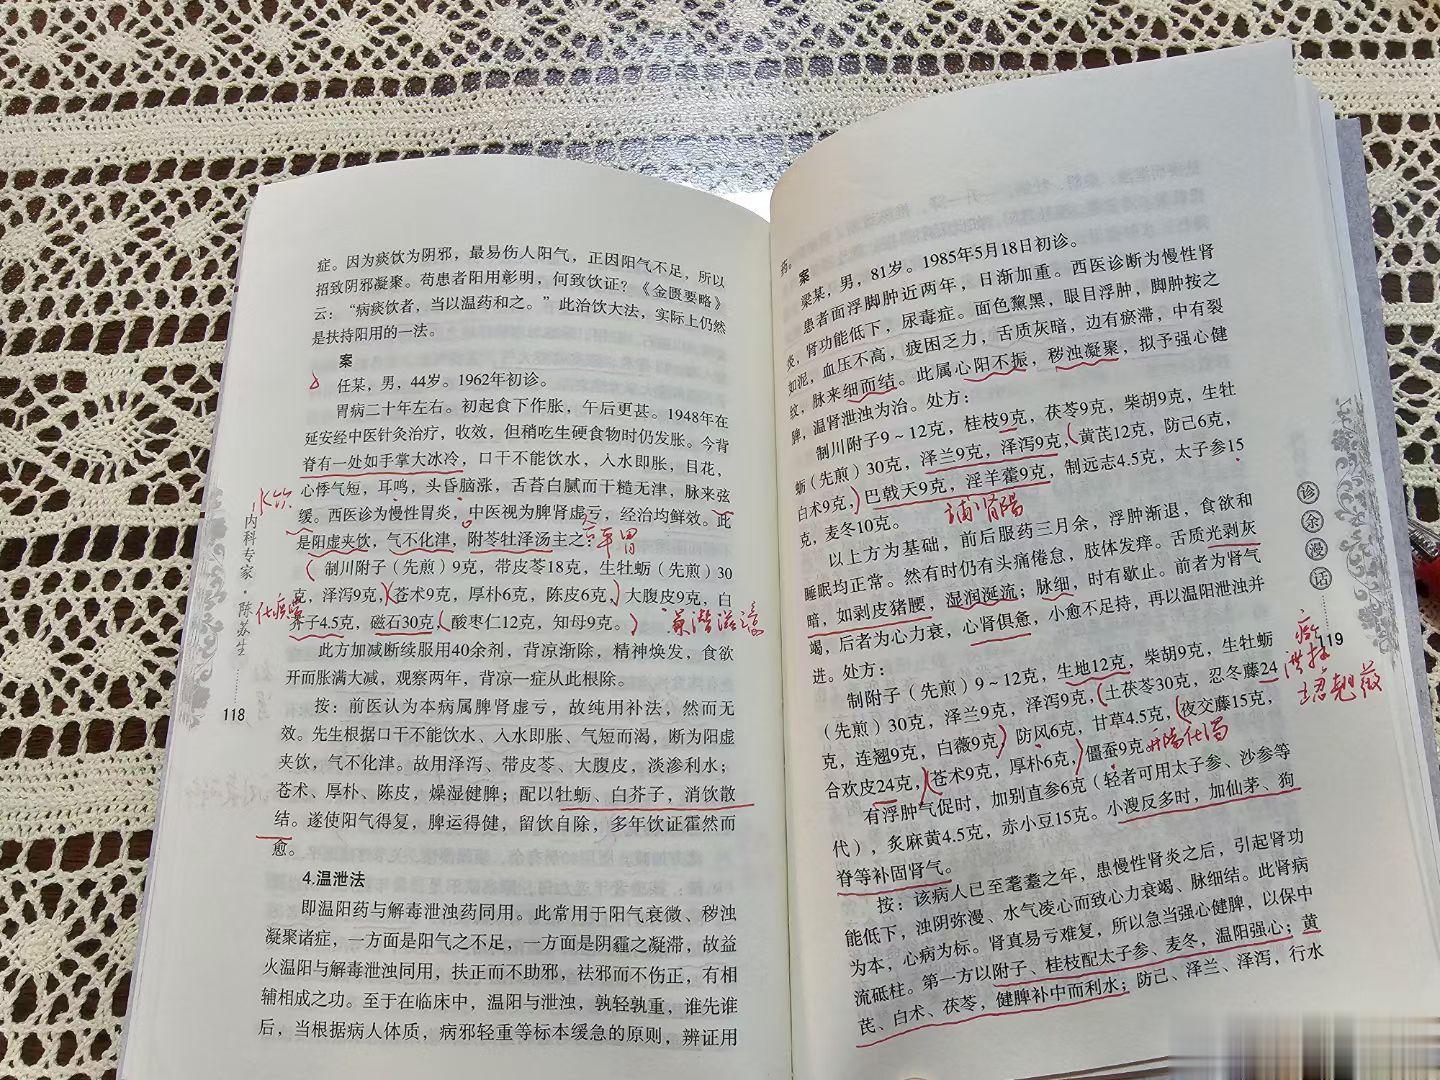 症。因为痰饮为阴邪，最易伤人阳气，正因阳气不足，所以
招致阴邪凝聚。苟患者阳用彰明，何致饮证？《金匮要略》
云：“病痰饮者，当以温药和之。”此治饮大法，实际上仍然
是扶持阳用的一法。
案
任某，男，44岁。1962年初诊。
胃病二十年左右。初起食下作胀，午后更甚。1948年在
延安经中医针灸治疗，收效，但稍吃生硬食物时仍发胀。今背
脊有一处如手掌大冰冷，口干不能饮水，入水即胀，目花，
心悸气短，耳鸣，头昏脑涨，舌苔白腻而干糙无津，脉来弦
缓。西医诊为慢性胃炎，中医视为脾肾虚亏，经治均鲜效。此
是阳虚夹饮，气不化津，附苓牡泽汤主之：
平胃
水饮
制川附子（先煎）9克，带皮苓18克，生牡蛎（先煎）30
克，泽泻9克，苍术9克，厚朴6克，陈皮6克，大腹皮9克，白
芥子4.5克，磁石30克，酸枣仁12克，知母9克。
此方加减断续服用40余剂，背凉渐除，精神焕发，食欲
开而胀满大减，观察两年，背凉一症从此根除。
按：前医认为本病属脾肾虚亏，故纯用补法，然而无
效。先生根据口干不能饮水、入水即胀、气短而渴，断为阳虚
夹饮，气不化津。故用泽泻、带皮苓、大腹皮，淡渗利水；
苍术、厚朴、陈皮，燥湿健脾；配以牡蛎、白芥子，消饮散
结。遂使阳气得复，脾运得健，留饮自除，多年饮证霍然而
愈。
4.温泄法
即温阳药与解毒泄浊药同用。此常用于阳气衰微、秽浊
凝聚诸症，一方面是阳气之不足，一方面是阴霾之凝滞，故益
火温阳与解毒泄浊同用，扶正而不助邪，祛邪而不伤正，有相
辅相成之功。至于在临床中，温阳与泄浊，孰轻孰重，谁先谁
后，当根据病人体质，病邪轻重等标本缓急的原则，辨证用
内科专家·陈苏生
118
药。
案
梁某，男，81岁。1985年5月18日初诊。
患者面浮脚肿近两年，日渐加重。西医诊断为慢性肾
炎，肾功能低下，尿毒症。面色黧黑，眼目浮肿，脚肿按之
如泥，血压不高，疲困乏力，舌质灰暗，边有瘀滞，中有裂
纹，脉来细而结。此属心阳不振，秽浊凝聚，拟予强心健
脾，温肾泄浊为治。处方：
制川附子9～12克，桂枝9克，茯苓9克，柴胡9克，生牡
蛎（先煎）30克，泽兰9克，泽泻9克，黄芪12克，防己6克，
白术9克，巴戟天9克，淫羊藿9克，制远志4.5克，太子参15
克，麦冬10克。
补肾阳
以上方为基础，前后服药三月余，浮肿渐退，食欲和
睡眠均正常。然有时仍有头痛倦怠，肢体发痒。舌质光剥灰
暗，如剥皮猪腰，湿润涎流；脉细，时有歇止。前者为肾气
竭，后者为心力衰，心肾俱惫，小愈不足持，再以温阳泄浊并
进。处方：
制附子（先煎）9～12克，生地12克，柴胡9克，生牡蛎
（先煎）30克，泽兰9克，泽泻9克，土茯苓30克，忍冬藤24
克，连翘9克，白薇9克，防风6克，甘草4.5克，夜交藤15克，
合欢皮24克，苍术9克，厚朴6克，僵蚕9克。
有浮肿气促时，加别直参6克（轻者可用太子参、沙参等
代），炙麻黄4.5克，赤小豆15克。小溲反多时，加仙茅、狗
脊等补固肾气。
按：该病人已至耄耋之年，患慢性肾炎之后，引起肾功
能低下，浊阴弥漫、水气凌心而致心力衰竭、脉细结。此肾病
为本，心病为标。肾真易亏难复，所以急当强心健脾，以保中
流砥柱。第一方以附子、桂枝配太子参、麦冬，温阳强心；黄
芪、白术、茯苓，健脾补中而利水；防己、泽兰、泽泻，行水
诊余漫话
119